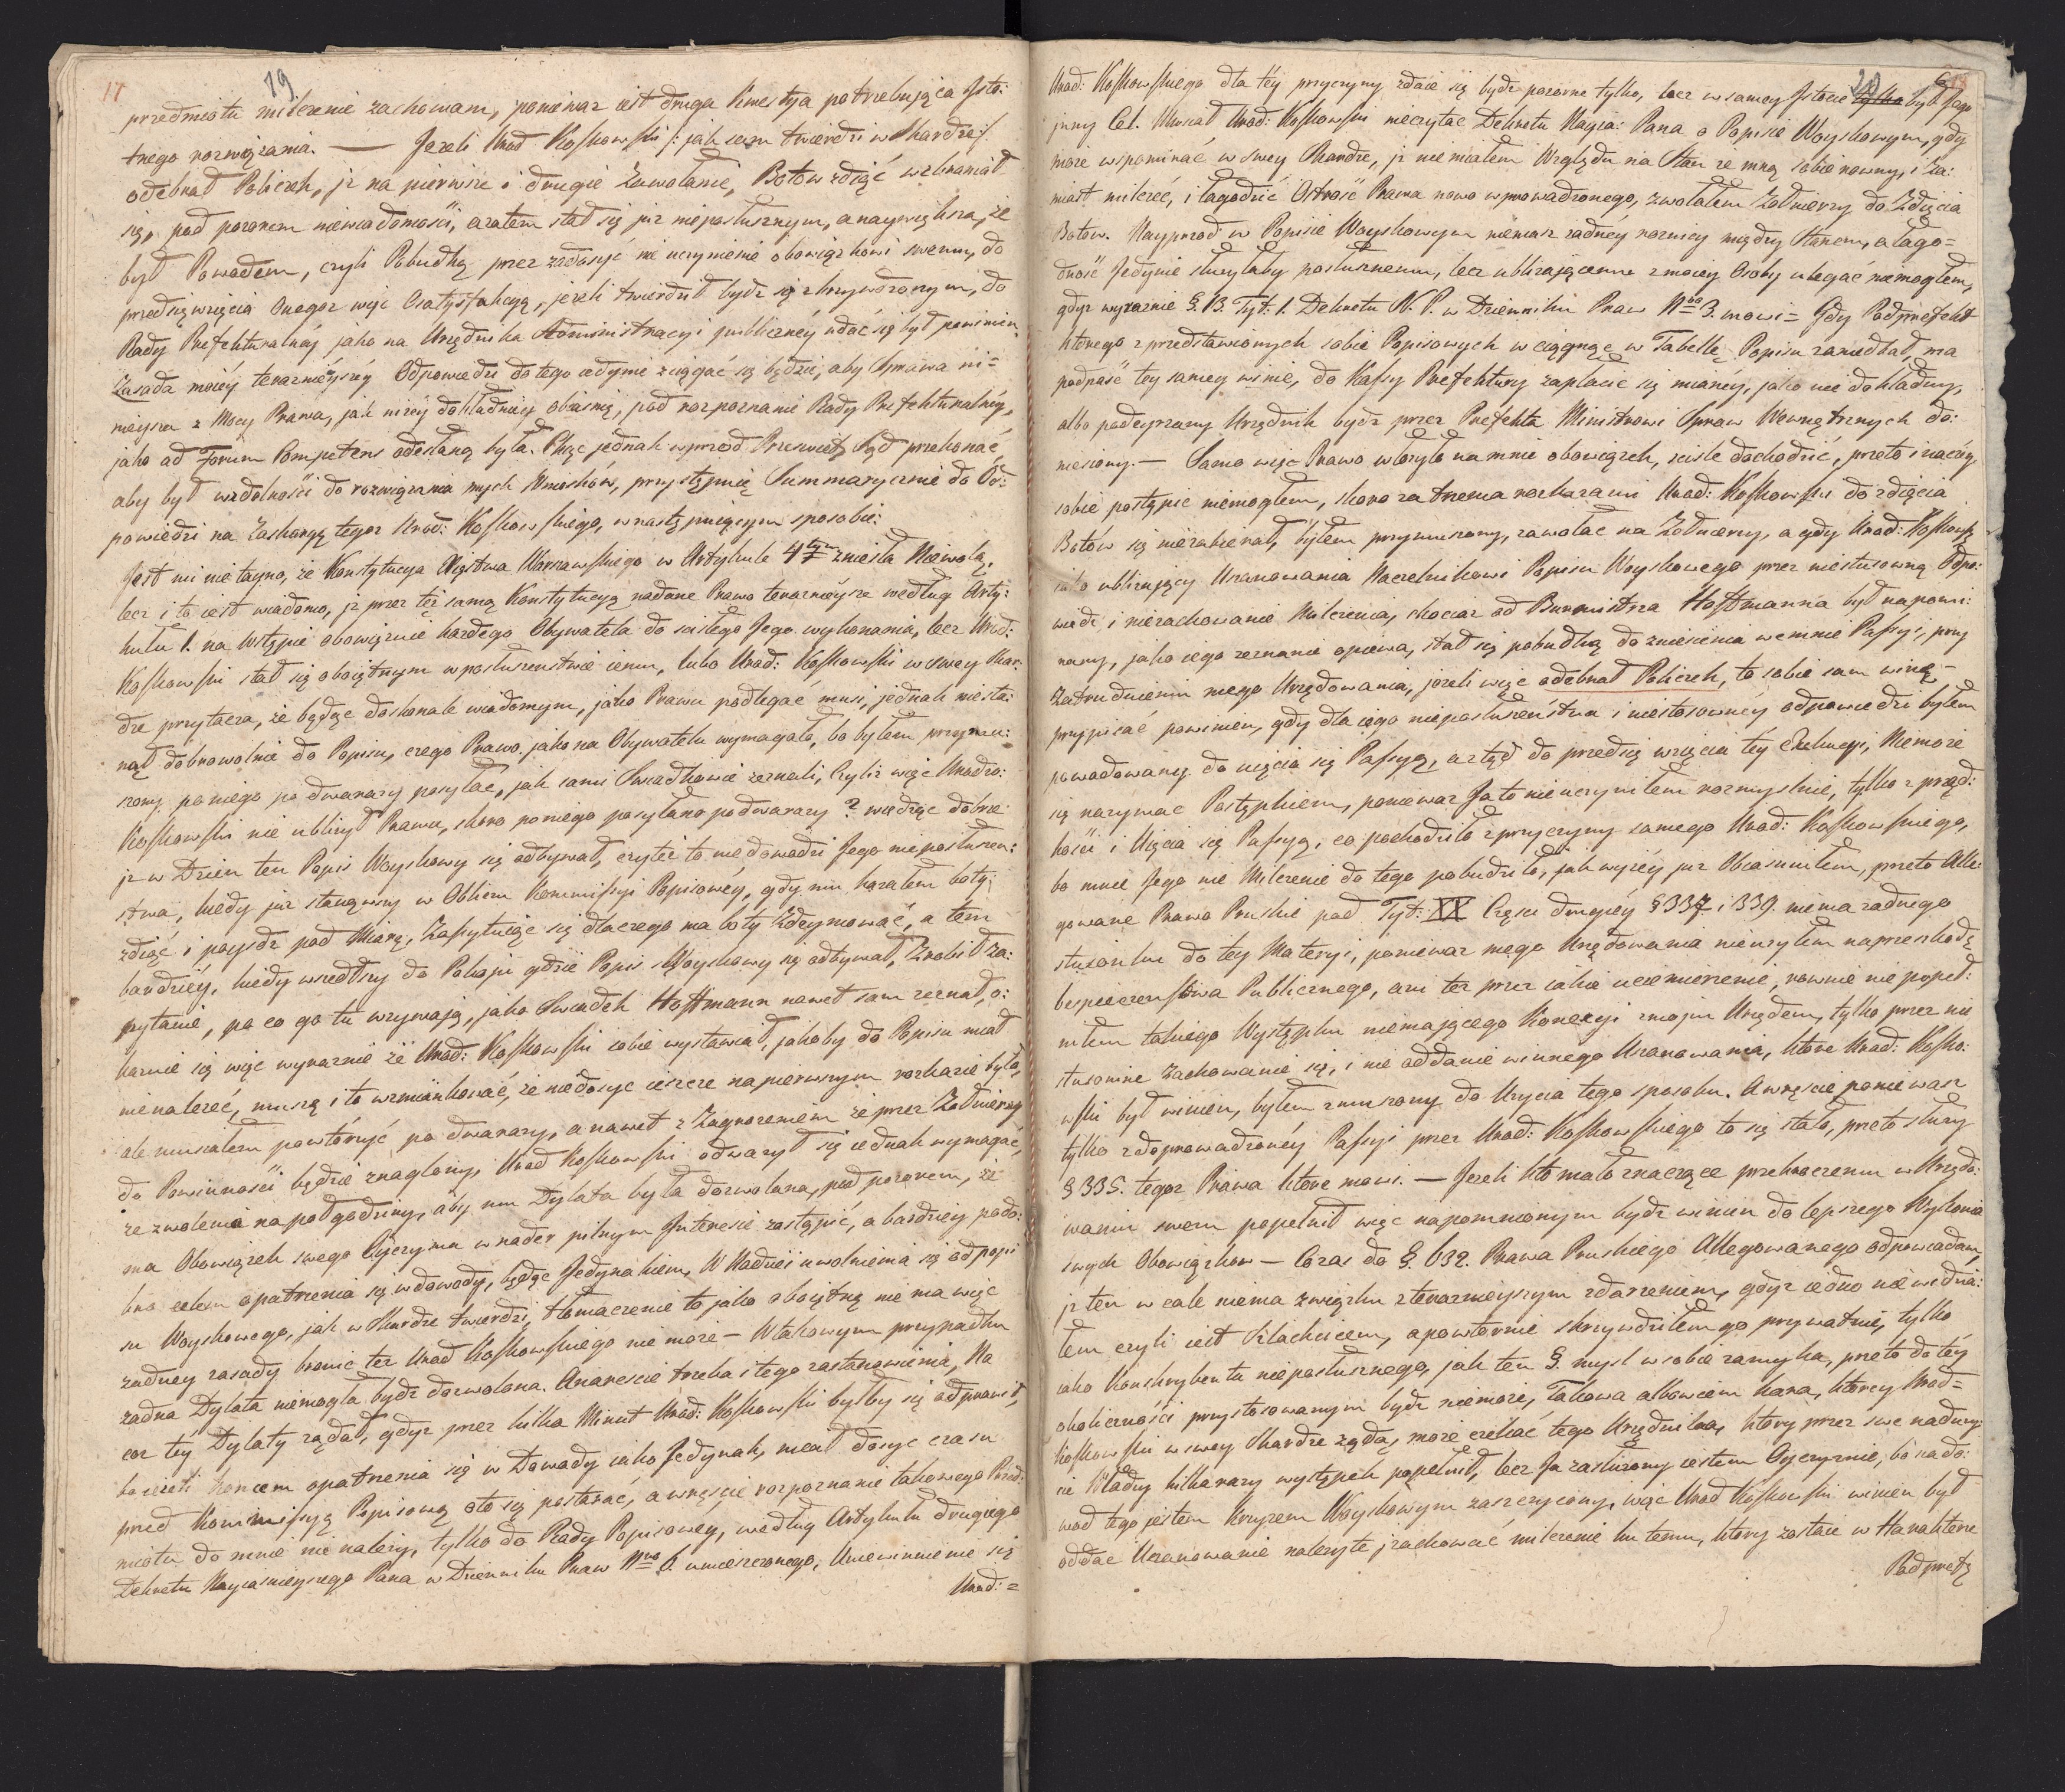 17
19
przedmiotu milczenie zachowam, ponieważ iest druga kwestya potrzebuiąca Isto:
tnego rozwiązania. — Jeżeli Urod Koskowski /: jak sam twierdzi w Skardze :/
odebrał Policzek, iż na pierwsze i drugie Zawołanie, Botow zdiąć wzbraniał
się, pod pozorem niewiadomości, a zatem stał się już nieposłusznym, a naywiększa, że
był Powodem, czyli Pobudką przez zadosyć nie uczynienie obowiązkowi swemu, do
przedsięwzięcia Onegoż więc Osatysfakcyą, jeżeli twierdził bydz się skrzywdzonym, do
Rady Prefekturalnéy jako na Urzędnika Administracyi publicznéy udać się był powinien.
Zasada moiéy teraznieyszéy Odpowiedzi do tego iedynie ściągać się będzie, aby Sprawa ni=
nieysza z Mocy Prawa, jak niżéy dokładniey obiasnię, pod rozpoznanie Rady Prefekturalnéy,
jako ad Forum Competens odesłaną była. Chcąc jednak wprzod Przeswiet: Sąd przekonać,
aby był w zdolności do rozwiązania mych Wniosków, przystępuię Summarycznie do Od:
powiedzi na Zaskargę tegoż Urod: Koskowskiego, w następuiącym sposobie:
Jest mi nie tayno, że Konstytucya Xięstwa Warszawskiego w Artykule 4tym zniosła Niewolą,
lecz i to iest wiadomo, iż przez tęż samą Konstytucyą nadane Prawo teraznieysze według Arty:
kułu 1. na Wstępie obowiązuie każdego Obywatela do scisłego Jego wykonania, lecz Urod:
Koskowski stał się oboiętnym w posłuszeństwie iemu, lubo Urod: Koskowski w swey Skar:
dze przytacza, że będąc doskonale wiadomym, jako Prawu podlegać musi, jednak niesta:
nął dobrowolnie do Popisu, czego Prawo jako na Obywatelu wymagało, bo byłem przymu:
szony po niego po dwarazy posyłac, jak sami Swiadkowie zeznali, Czyliż więc Urodzo:
Koskowski nie ubliżył Prawu, skoro po niego posyłano podwarazy? wiedząc dobrze
iż w Dzien ten Popis Woyskowy się odbywał, czyteż to nie dowodzi Jego nieposłuszen:
stwa, kiedy już stanąwszy w Obliczu Kommissyi Popisowéy, gdy mu kazałem boty
zdiąć i poysdz pod Miarę, Zapytuiąc się dlaczego ma boty Zdeymować, a tem
bardziéy, kiedy wszedłszy do Pokoju gdzie Popis Woyskowy się odbywał, Zrobił za:
pytanie, po co go tu wzywaią, jako Swiadek Hoffmann nawet sam zeznał, o:
kazuie się więc wyraznie że Urod: Koskowski sobie wystawiał, jakoby do Popisu miał
nienależeć, muszę i to wzmiankować, że niedosyc ieszcze na pierwszym rozkazie było,
ale musiałem powtórzyć po dwarazy, a nawet z Zagrożeniem że przez Żołnierzy
do Powinności będzie znaglony, Urod Koskowski odważył się iednak wymagać,
ze zwolenia na poł godziny, aby mu Dylata była dozwolona, pod pozorem, że
ma Obowiązek swego Oyczyma w nader pilnym Interesie zastąpić, a bardziey podo:
bno celem opatrzenia się w dowody, będąc Jedynakiem, W Nadziei uwolnienia się od popi
su Woyskowego, jak w Skardze twierdzi, tłomaczenie to jako oboiętną nie ma więc
żadney zasady bronic też Urod Koskowskiego nie może — Wtakowym przypadku
żadna Dylata niemogła bydz dozwolona. Anareszcie trzeba i tego zastanowienia, Na
coż téy Dylaty żądał, gdyż przez kilka Minut Urod: Koskowski byłby się odprawił,
bo ieżeli koncem opatrzenia się w Dowody iako Jedynak, miał dosyc czasu
przed Kommissyą Popisową oto się postarać, a wreszcie rozpoznanie takowego Przed:
miotu do mnie nie należy, tylko do Rady Popisowey, według Artykułu drugiego
Dekretu Nayiasnieyszego Pana w Dzienniku Praw Nro 6. umieszczonego, Uniewinnienie się
Urod: =
20
Urod: Koskowskiego dla téy przyczyny zdaie się bydz pozorne tylko, lecz w samey Istocie był Jego
inny Cel. Musiał Urod: Koskowski nieczytac Dekretu Nayia: Pana o Popisie Woyskowym, gdy
może wspominać w swey Skardze, iż nie miałem Względu na Stan ze mną sobie rowny, i Za:
miast milczeć, i łagodzić Ostrość Prawa nowo wprowadzonego, zwołałem Żołnierzy do Zdięcia
Botow. Nayprzod w Popisie Woyskowym niemasz żadnéy roznicy między Stanem, a łago=
dność Jedynie służyłaby posłusznemu, lecz ubliżaiącemu z moiey Osoby ulegać niemogłem,
gdyż wyraznie §. 13. Tyt. 1. Dekretu N. P. w Dzienniku Praw Nro 3. mowi = Gdy Podprefekt
ktorego z przedstawionych sobie Popisowych w ciągnąc w Tabellę Popisu zaniedbał, ma
podpaść tey samey winie, do Kassy Prefektury zapłacic się mianéy, jako nie dokładny,
albo podeyrzany Urzędnik bydz przez Prefekta Ministrowi Spraw Wewnętrznych do:
niesiony. — Samo więc Prawo włożyło na mnie obowiązek, scisle dochodzić, przeto inaczéy
sobie postąpic niemogłem, skoro za trzema rozkazami Urod: Koskowski do zdięcia
Botów się niezabierał, byłem przymuszony, zawołac na Żołnierzy, a gdy Urod: Koskowsk
iako ubliżaiący Uszanowania Naczelnikowi Popisu Woyskowego przez niestosowną Odpo:
wiedz i niezachowanie Milczenia, chociaz od Burmistrza Hoffmanna był napomi:
nany, jako iego zeznanie opiewa, stał się pobudką do zniesienia wemnie Passyi, przy
Zatrudnieniu mego Urzędowania, jeżeli więc odebrał Policzek, to sobie sam winę
przypisać powinien, gdy dla iego nieposłuszeństwa i niestosownéy odpowiedzi byłem
powodowany do uięcia się Passyą, a ztąd do przedsię wzięcia téy Exekucyi, Niemoże
się nazywac Postępkiem, ponieważ Ja to nie uczyniłem rozmyslnie, tylko z pręd:
kości i Uięcia się Passyą, co pochodziło z przyczyny samego Urod: Koskowskiego,
bo mnie Jego nie Milczenie do tego pobudziło, jak wyżéy już Obiasniłem, przeto Alle:
gowane Prawo Pruskie pod Tyt: XX Części drugiéy § 337 i 339. niema żadnego
stosunku do tey Materyi, ponieważ mego Urzędowania nieużyłem na przeszkodę
bespieczenstwa Publicznego, ani też przez iakie uciemiezenie, rownie nie popeł:
niłem takiego Występku niemaiącego Konexyi z moim Urzędem, tylko przez nie
stosowne Zachowanie się, i nie oddanie winnego Uszanowania, które Urod: Kosko:
wski był winien, byłem zmuszony do Użycia tego sposobu. A wreście ponieważ
tylko z doprowadzonéy Passyi przez Urod: Koskowskiego to się stało, przeto służy
§ 335. tegoż Prawa które mowi. — Jeżeli kto mało znaczące przekroczenia w Urzędo:
waniu swem popełnił więc napomnionym bydz winien do lepszego Wykonia
swych Obowiązkow — Coras do §. 632. Prawa Pruskiego Allegowanego odpowiadam,
iż ten w cale niema związku z teraznieyszym zdarzeniem, gdyż iedno nie wiedzia:
łem czyli iest Szlachcicem, a powtornie skrzywdziłem go prywatnie, tylko
iako Konskrybenta nieposłusznego, jak ten §. mysl w sobie zamyka, przeto do téy
okoliczności przystosowanym bydz niemoże, Takowa albowiem kara, ktorey Urod=
Koskowski w swey Skardze żąda, może czekać tego Urzędnika, ktory przez swe nadużyj
cie Władzy kilkarazy występek popełnił, lecz Ja zasłużony iestem Oyczyznie, bo na do:
wod tego jestem Krzyżem Woyskowym zaszczycony, więc Urod Koskowski winien był
oddac Uszanowanie należyte i zachować milczenie ku temu, ktory zostaie w Harakterze
Podpref: